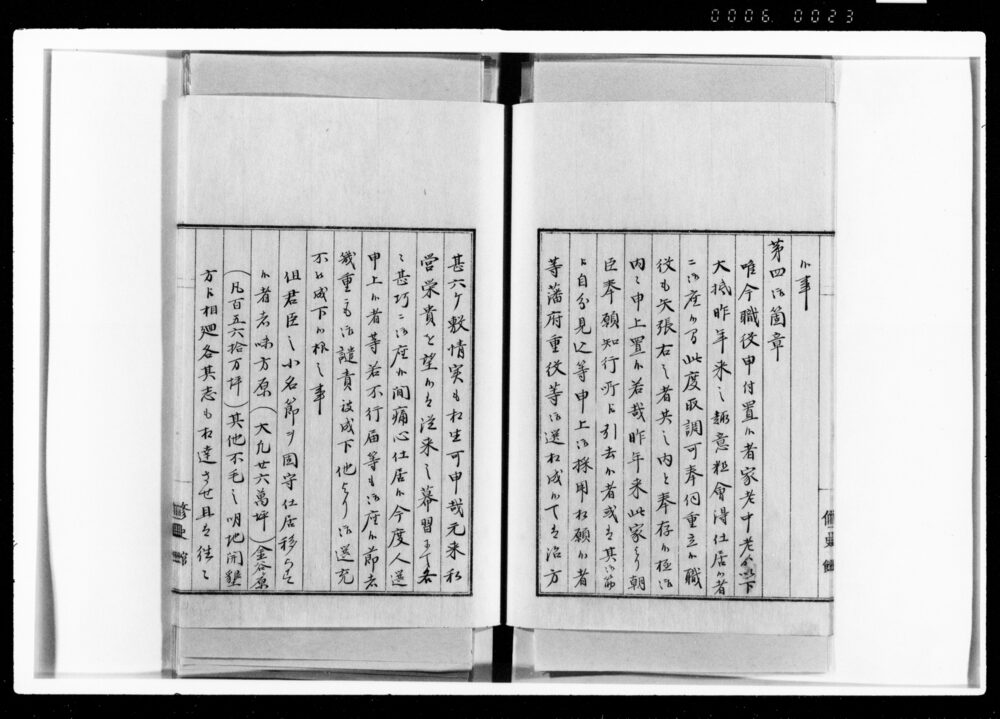 0006. 0023
候事
第四御箇章
唯今職役申付置候者家老中老以下
大抵昨年来之趣意粗會得仕居候者
ニ御座候間此度取調可奉伺重立候職
役も矢張右之者共之内と奉存候極御
内々申上置候若哉昨年来此家より朝
臣奉願知行所に引去候者或は其御筋
に自分見込等申上御採用相願候者
等藩府重役等御選相成候ては治方
甚六ケ敷情実も相生可申哉元来私
営栄貴を望候は従来之幕習にて名
甚巧ニ御座候間痛心仕居候今度人選
申上候者等若不行届等も御座候節者
幾重も御譴責被成下他より御選充
不被成下候様之事
但君臣之小名節ヲ固守仕居移らさる
候者者味方原（大凡廿六萬坪）金谷原
（凡百五六拾万坪）其他不毛之明地開墾
方に相廻各其志も相達させ且は往々
修史館
修史館